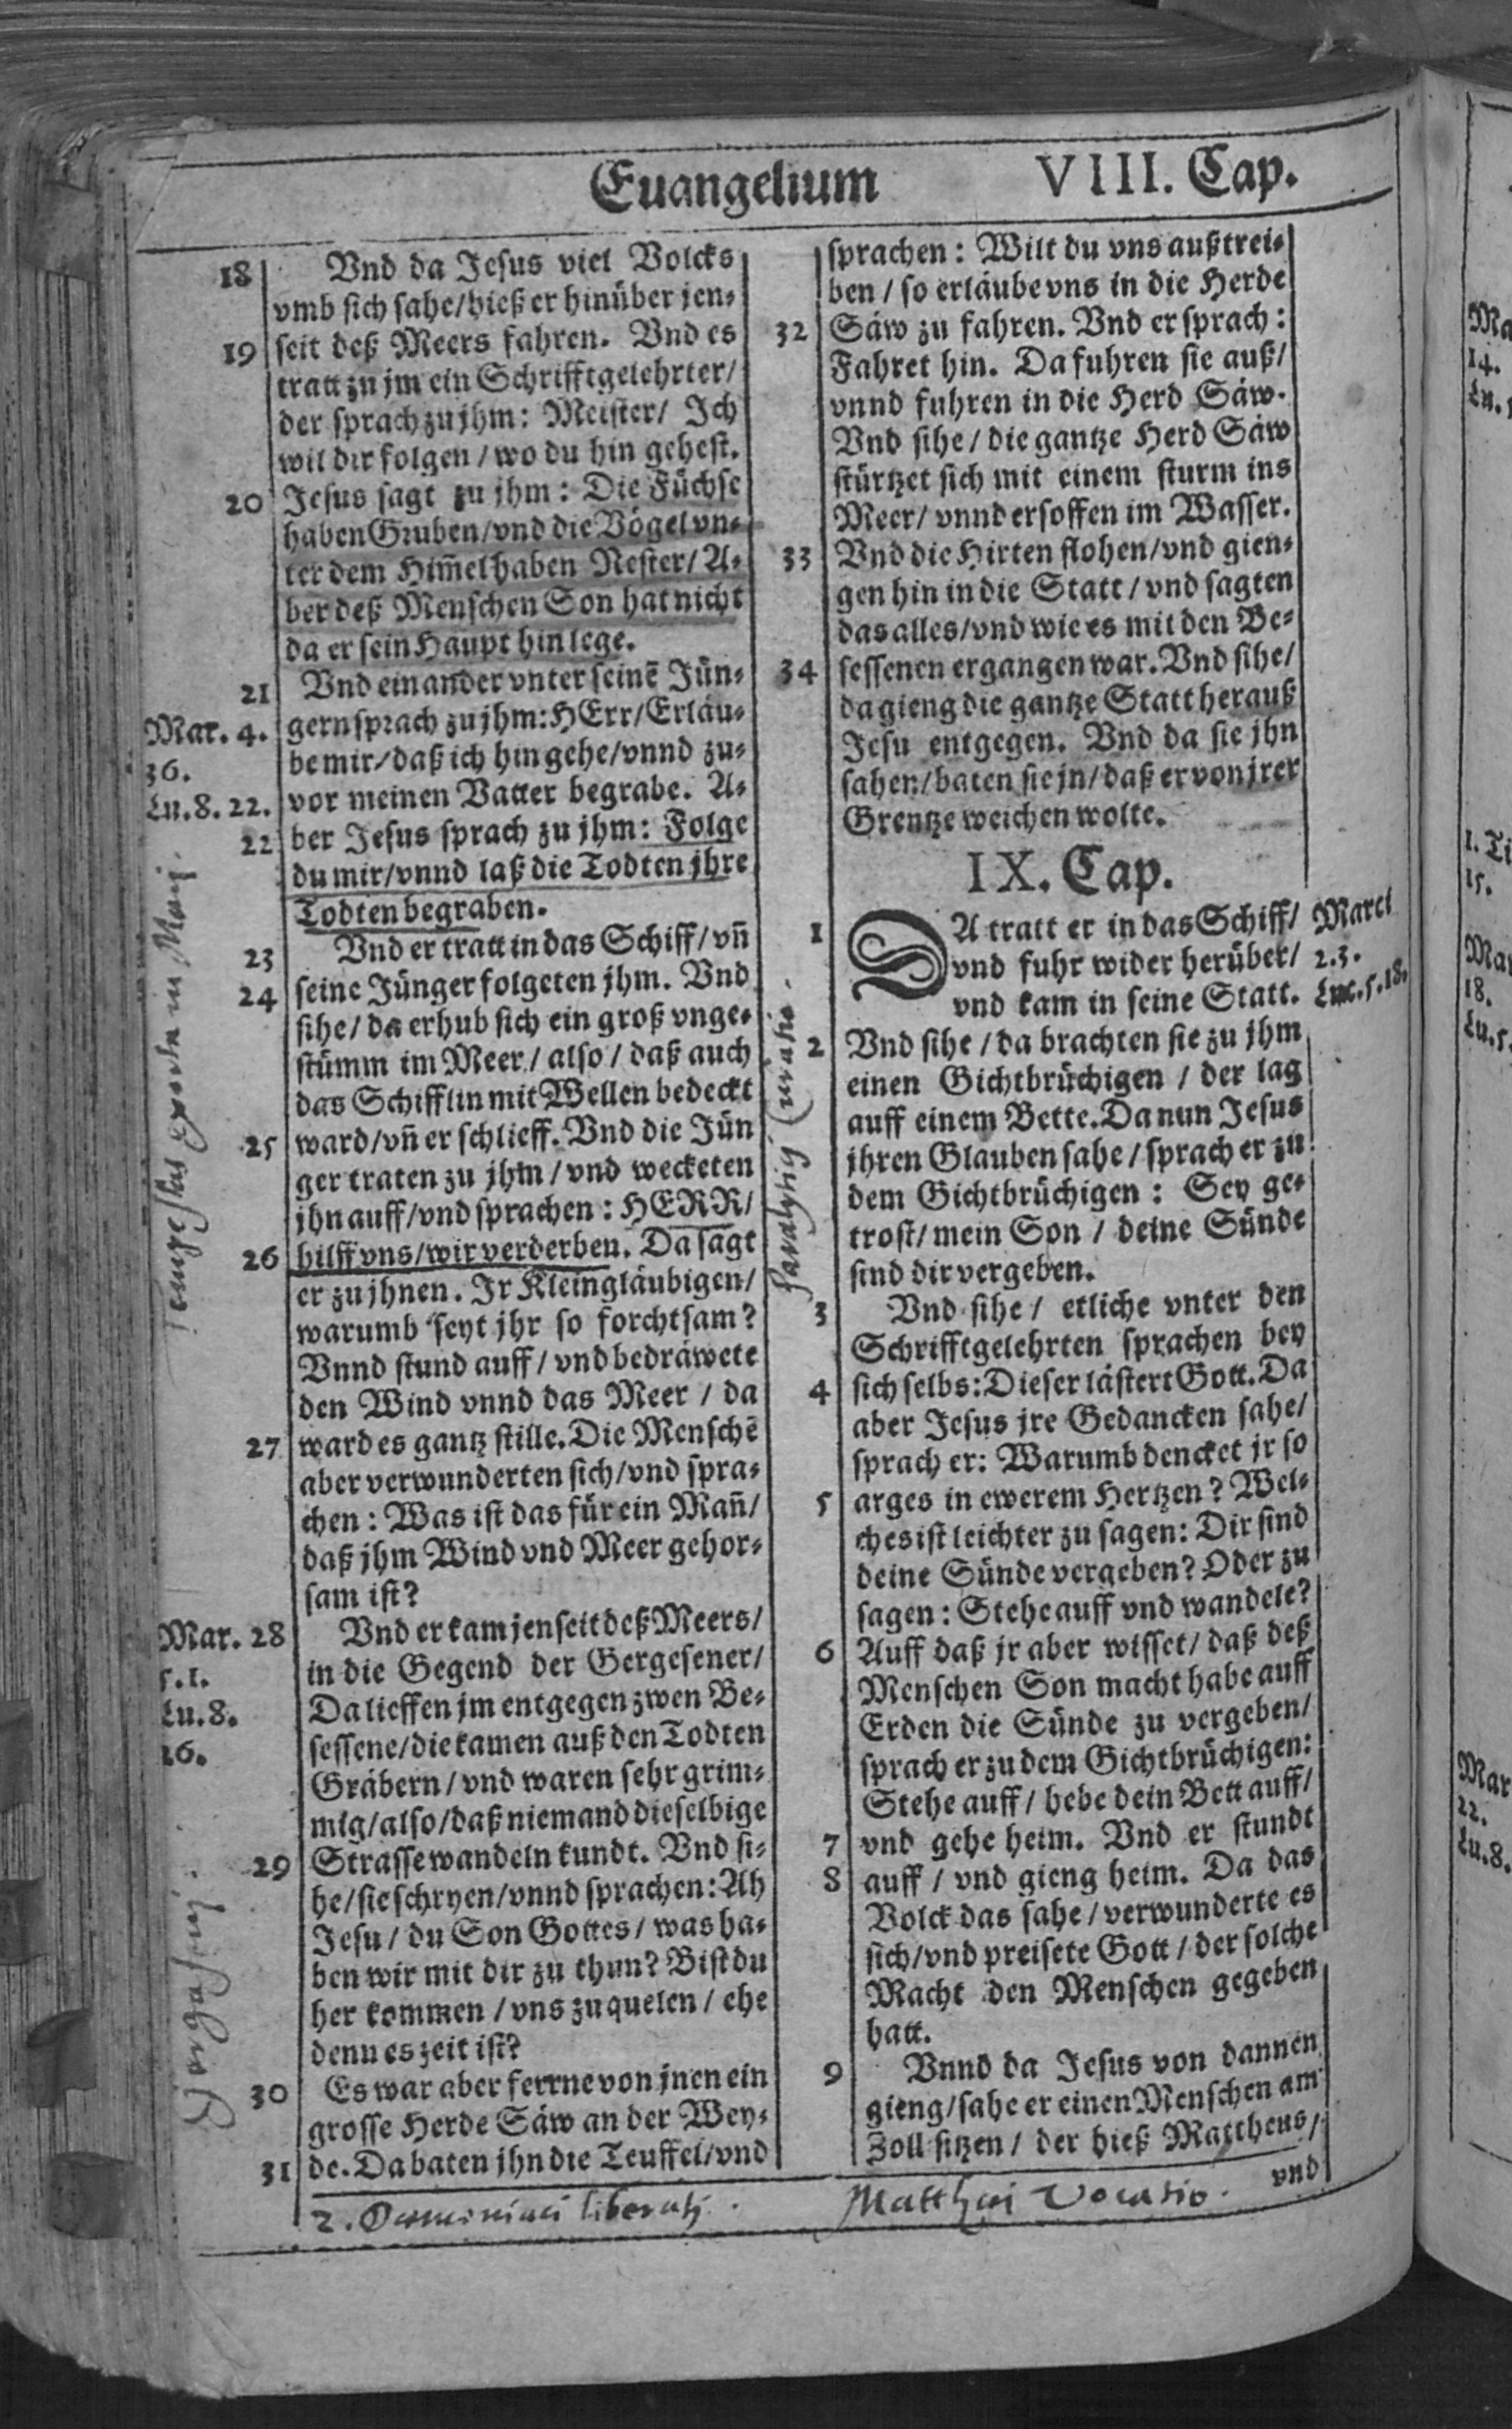 Euangelium VIII. Cap.
18 Vnd da Jesus viel Volcks
vmb sich sahe/hieß er hinüber jen-
19 seit deß Meers fahren. Vnd es
tratt zu jm ein Schrifftgelehrter/
der sprach zu jhm: Meister/ Ich
wil dir folgen/wo du hin gehest.
20 Jesus sagt zu jhm: Die Füchse
haben Gruben/vnd die Vögel vn-
ter dem Him̄el haben Nester/A-
ber deß Menschen Son hat nicht
da er sein Haupt hin lege.
21 Vnd ein ander vnter seinē Jün-
Mar. 4. gern sprach zu jhm: HErr/Erläu-
36. be mir/daß ich hin gehe/vnnd zu-
Lu. 8. 22. vor meinen Vatter begrabe. A-
22 ber Jesus sprach zu jhm: Folge
du mir/vnnd laß die Todten jhre
Todten begraben.
23 Vnd er tratt in das Schiff/vn̄
24 seine Jünger folgeten jhm. Vnd
sihe/da erhub sich ein groß vnge-
stümm im Meer/also/daß auch
das Schifflin mit Wellen bedeckt
25 ward/vn̄ er schlieff. Vnd die Jün
ger traten zu jhm/vnd wecketen
jhn auff/vnd sprachen: HERR/
26 hilff vns/wir verderben. Da sagt
er zu jhnen. Ir Kleingläubigen/
warumb seyt jhr so forchtsam?
Vnnd stund auff/vnd bedräwete
den Wind vnnd das Meer/da
27 ward es gantz stille. Die Menschē
aber verwunderten sich/vnd spra-
chen: Was ist das für ein Man̄/
daß jhm Wind vnd Meer gehor-
sam ist?
Mar. 28 Vnd er kam jenseit deß Meers/
5. 1. in die Gegend der Gergesener/
Lu. 8. Da lieffen jm entgegen zwen Be-
26. sessene/die kamen auß den Todten
Gräbern/vnd waren sehr grim-
mig/also/daß niemand dieselbige
29 Strasse wandeln kundt. Vnd si-
he/sie schryen/vnnd sprachen: Ah
Jesu/du Son Gottes/was ha-
ben wir mit dir zu thun? Bist du
her kommen/vns zu quelen/ehe
denn es zeit ist?
30 Es war aber ferrne von jnen ein
grosse Herde Säw an der Wey-
31 de. Da baten jhn die Teuffel/vnd
Tempestas in Mari
Gergaseni
2. Daemoniaci liberati.
sprachen: Wilt du vns außtrei-
ben/so erläube vns in die Herde
32 Säw zu fahren. Vnd er sprach:
Fahret hin. Da fuhren sie auß/
vnnd fuhren in die Herd Säw.
Vnd sihe/die gantze Herd Säw
stürtzet sich mit einem sturm ins
Meer/vnnd ersoffen im Wasser.
33 Vnd die Hirten flohen/vnd gien-
gen hin in die Statt/vnd sagten
das alles/vnd wie es mit den Be-
34 sessenen ergangen war. Vnd sihe/
da gieng die gantze Statt herauß
Jesu entgegen. Vnd da sie jhn
sahen/baten sie jn/daß er von jrer
Grentze weichen wolte.
IX. Cap.
1 DA tratt er in das Schiff/ Marci
vnd fuhr wider herüber/ 2. 3.
vnd kam in seine Statt. Luc. 5. 18.
2 Vnd sihe/da brachten sie zu jhm
einen Gichtbrüchigen/der lag
auff einem Bette. Da nun Jesus
jhren Glauben sahe/sprach er zu
dem Gichtbrüchigen: Sey ge-
trost/mein Son/deine Sünde
sind dir vergeben.
3 Vnd sihe/etliche vnter den
Schrifftgelehrten sprachen bey
4 sich selbs: Dieser lästert Gott. Da
aber Jesus jre Gedancken sahe/
sprach er: Warumb dencket jr so
5 arges in ewerem Hertzen? Wel-
ches ist leichter zu sagen: Dir sind
deine Sünde vergeben? Oder zu
sagen: Stehe auff vnd wandele?
6 Auff daß jr aber wisset/daß deß
Menschen Son macht habe auff
Erden die Sünde zu vergeben/
sprach er zu dem Gichtbrüchigen:
Stehe auff/hebe dein Bett auff/
7 vnd gehe heim. Vnd er stundt
8 auff/vnd gieng heim. Da das
Volck das sahe/verwunderte es
sich/vnd preisete Gott/der solche
Macht den Menschen gegeben
hatt.
9 Vnnd da Jesus von dannen
gieng/sahe er einen Menschen am
Zoll sitzen/der hieß Mattheus/
vnd
Paralytici curatio.
Matthaei Vocatio.
Ma
14.
Lu.
1. Ti
15.
Mar
18.
Lu. 5.
Mar
22.
Lu. 8.